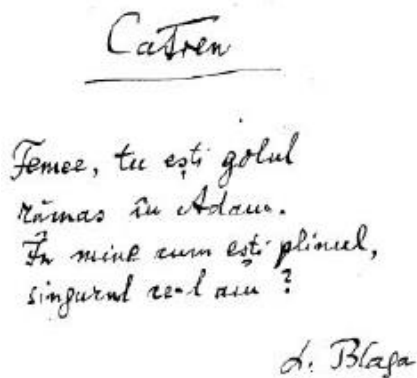 Catren
Femee, tu ești golul
rămas în Adam.
În mine cum ești plinul,
singurul ce-l am?
L. Blaga